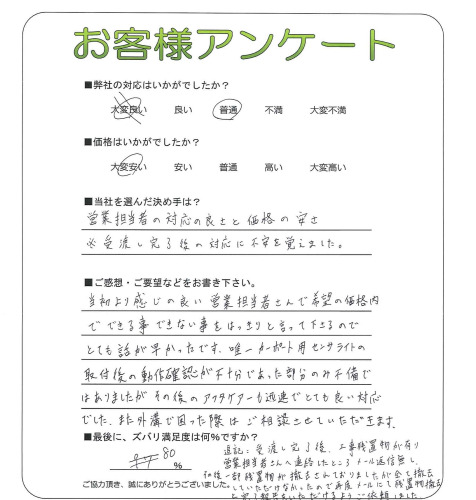 お客様アンケート
■弊社の対応はいかがでしたか？
大変良い 良い 普通 不満 大変不満
■価格はいかがでしたか？
大変安い 安い 普通 高い 大変高い
■当社を選んだ決め手は？
営業担当者の対応の良さと価格の安さ
※受渡し完了後の対応に不安を覚えました。
■ご感想・ご要望などをお書き下さい。
当初より感じの良い営業担当者さんで希望の価格内
でできる事できない事をはっきりと言って下さるので
とても話が早かったです。唯一カーポート用センサライトの
取付後の動作確認が不十分であった部分のみ不備で
はありましたがその後のアフタケアーも迅速でとても良い対応
でした。また外溝で困った際はご相談させていただきます。
■最後に、ズバリ満足度は何％ですか？
80
％
ご協力頂き、誠にありがとうございました。
追記：受渡し完了後、工事残置物が有り
営業担当者さんへ連絡したところメール返信無し。
後一部残置物が撤去されておりましたが全て撤去
していただけなかったので再度メールにて残置物撤去